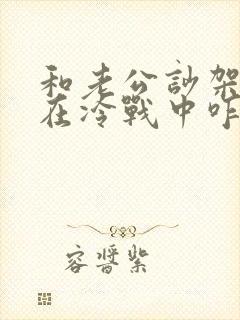 和老公訃架
在冷戰中咋
容醬紫